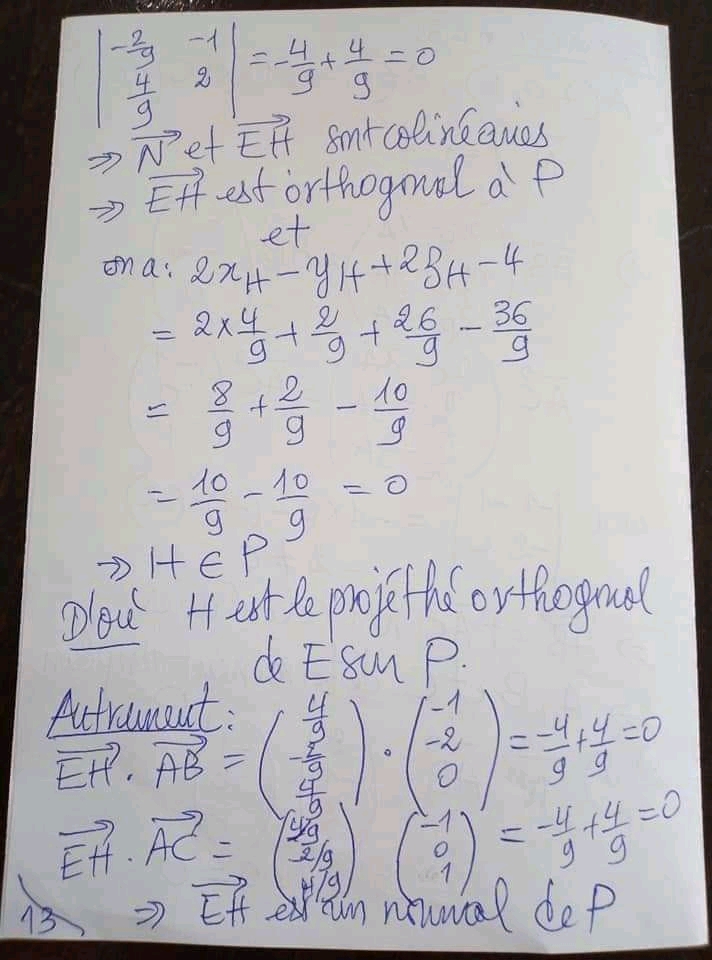 | -2/9 -1 | = -4/9 + 4/9 = 0
| 4/9 2 |
⇒ N⃗ et EH⃗ sont colinéaires
⇒ EH⃗ est orthogonal à P
et
on a: 2x_H - y_H + 2z_H - 4
= 2×4/9 + 2/9 + 26/9 - 36/9
= 8/9 + 2/9 - 10/9
= 10/9 - 10/9 = 0
⇒ H ∈ P
D'où H est le projéthé orthogonal
de E sur P.
Autrement:
EH⃗ . AB⃗ = (4/9 -2/9 4/9) . (-1 -2 0) = -4/9 + 4/9 = 0
EH⃗ . AC⃗ = (4/9 2/9 4/9) (-1 0 1) = -4/9 + 4/9 = 0
⇒ EH⃗ est un normal de P
13